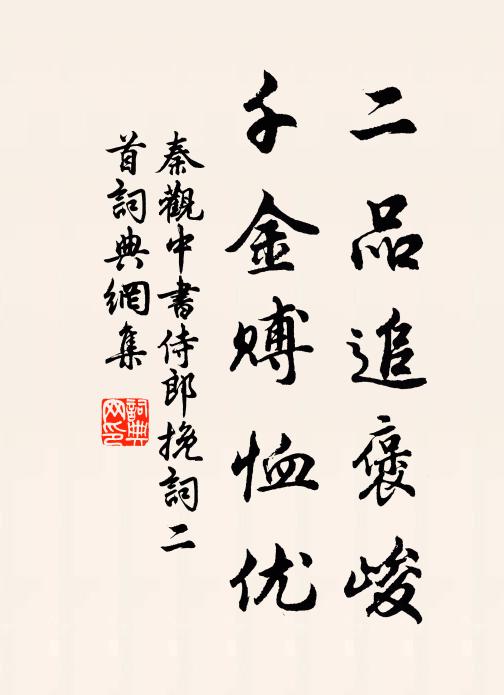 二品追褒峻
千金赙恤优
秦觀中書侍郎挽詞二
首詞典網集
詞典
网印